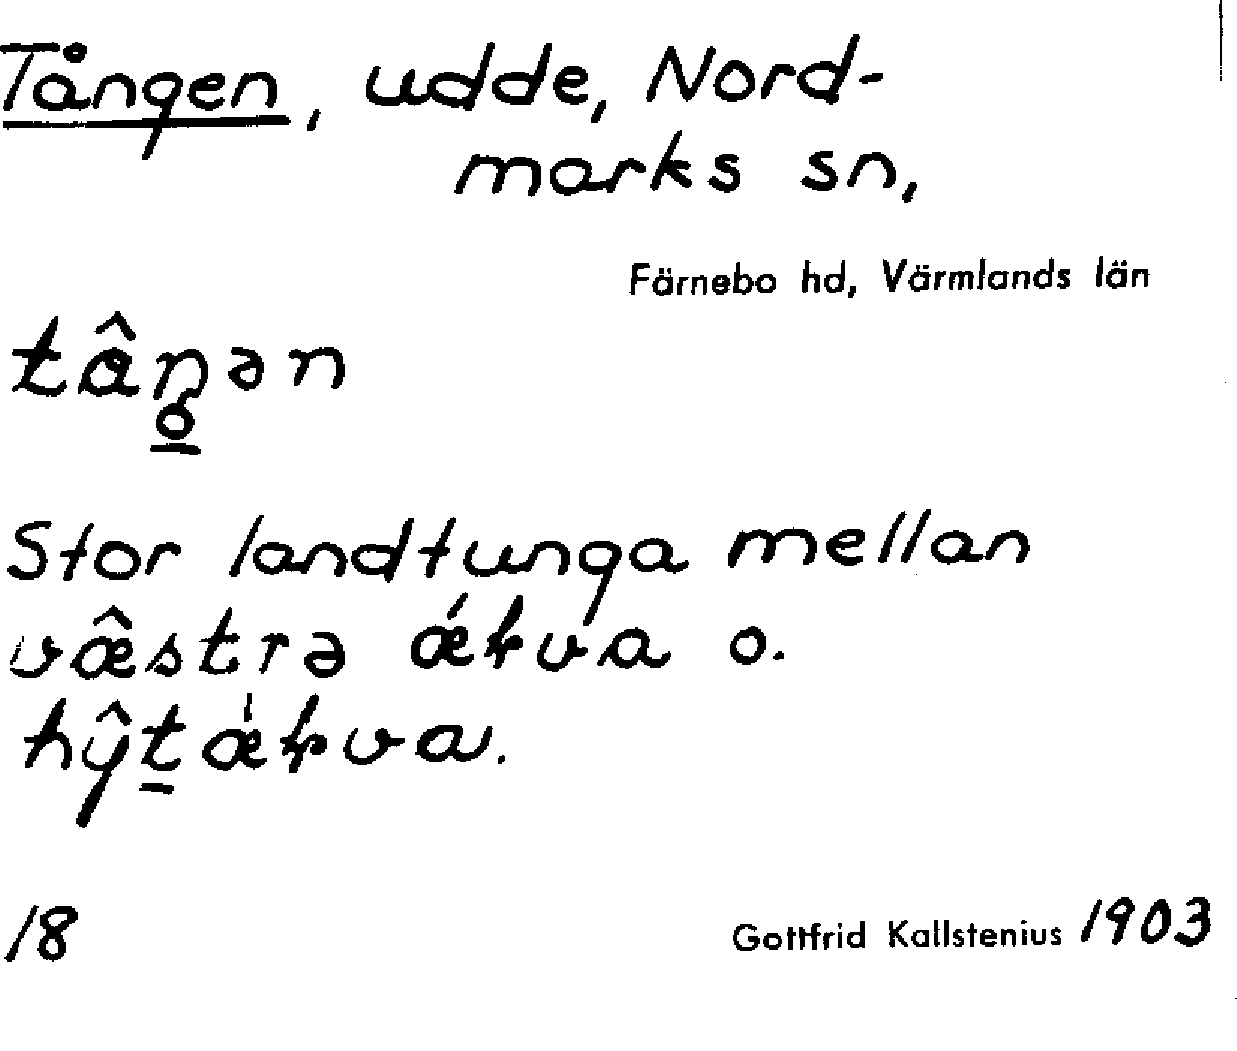 Tången, udde, Nord-
marks sn,
Färnebo hd, Värmlands län
tâŋən
Stor landtunga mellan
væ̂strə ǽkva o.
hŷtǽkva.
18
Gottfrid Kallstenius 1903